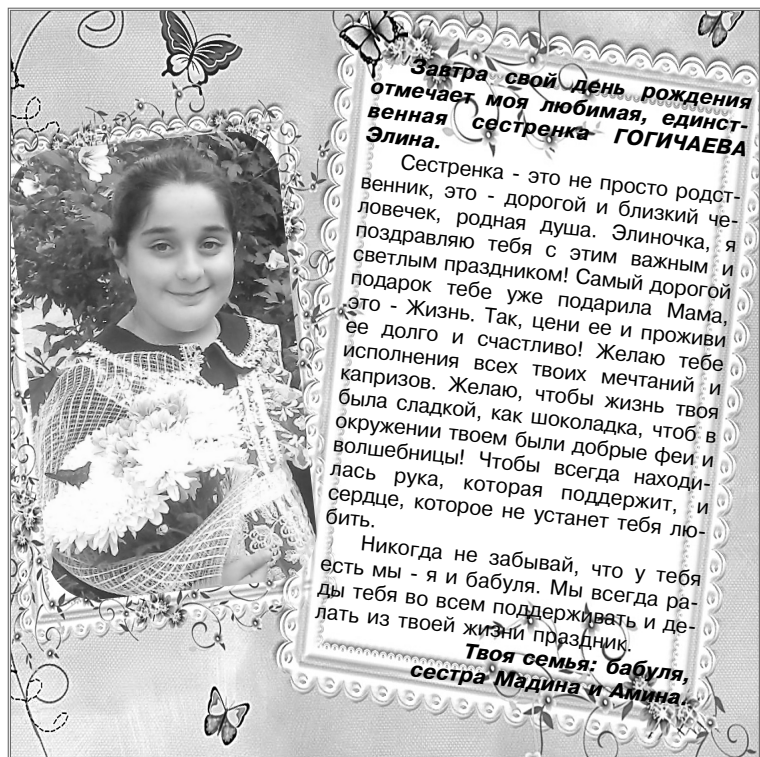 Завтра свой день рождения
отмечает моя любимая, единст-
венная сестренка ГОГИЧАЕВА
Элина.
Сестренка - это не просто родст-
венник, это - дорогой и близкий че-
ловечек, родная душа. Элиночка, я
поздравляю тебя с этим важным и
светлым праздником! Самый дорогой
подарок тебе уже подарила Мама,
это - Жизнь. Так, цени ее и проживи
ее долго и счастливо! Желаю тебе
исполнения всех твоих мечтаний и
капризов. Желаю, чтобы жизнь твоя
была сладкой, как шоколадка, чтоб в
окружении твоем были добрые феи и
волшебницы! Чтобы всегда находи-
лась рука, которая поддержит, и
сердце, которое не устанет тебя лю-
бить.
Никогда не забывай, что у тебя
есть мы - я и бабуля. Мы всегда ра-
ды тебя во всем поддерживать и де-
лать из твоей жизни праздник.
Твоя семья: бабуля,
сестра Мадина и Амина.